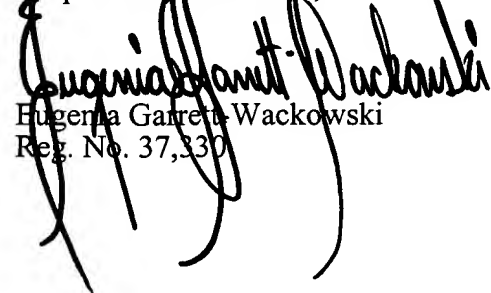 Eugenia Garrett-Wackowski
Eugenia Garrett-Wackowski
Reg. No. 37,330